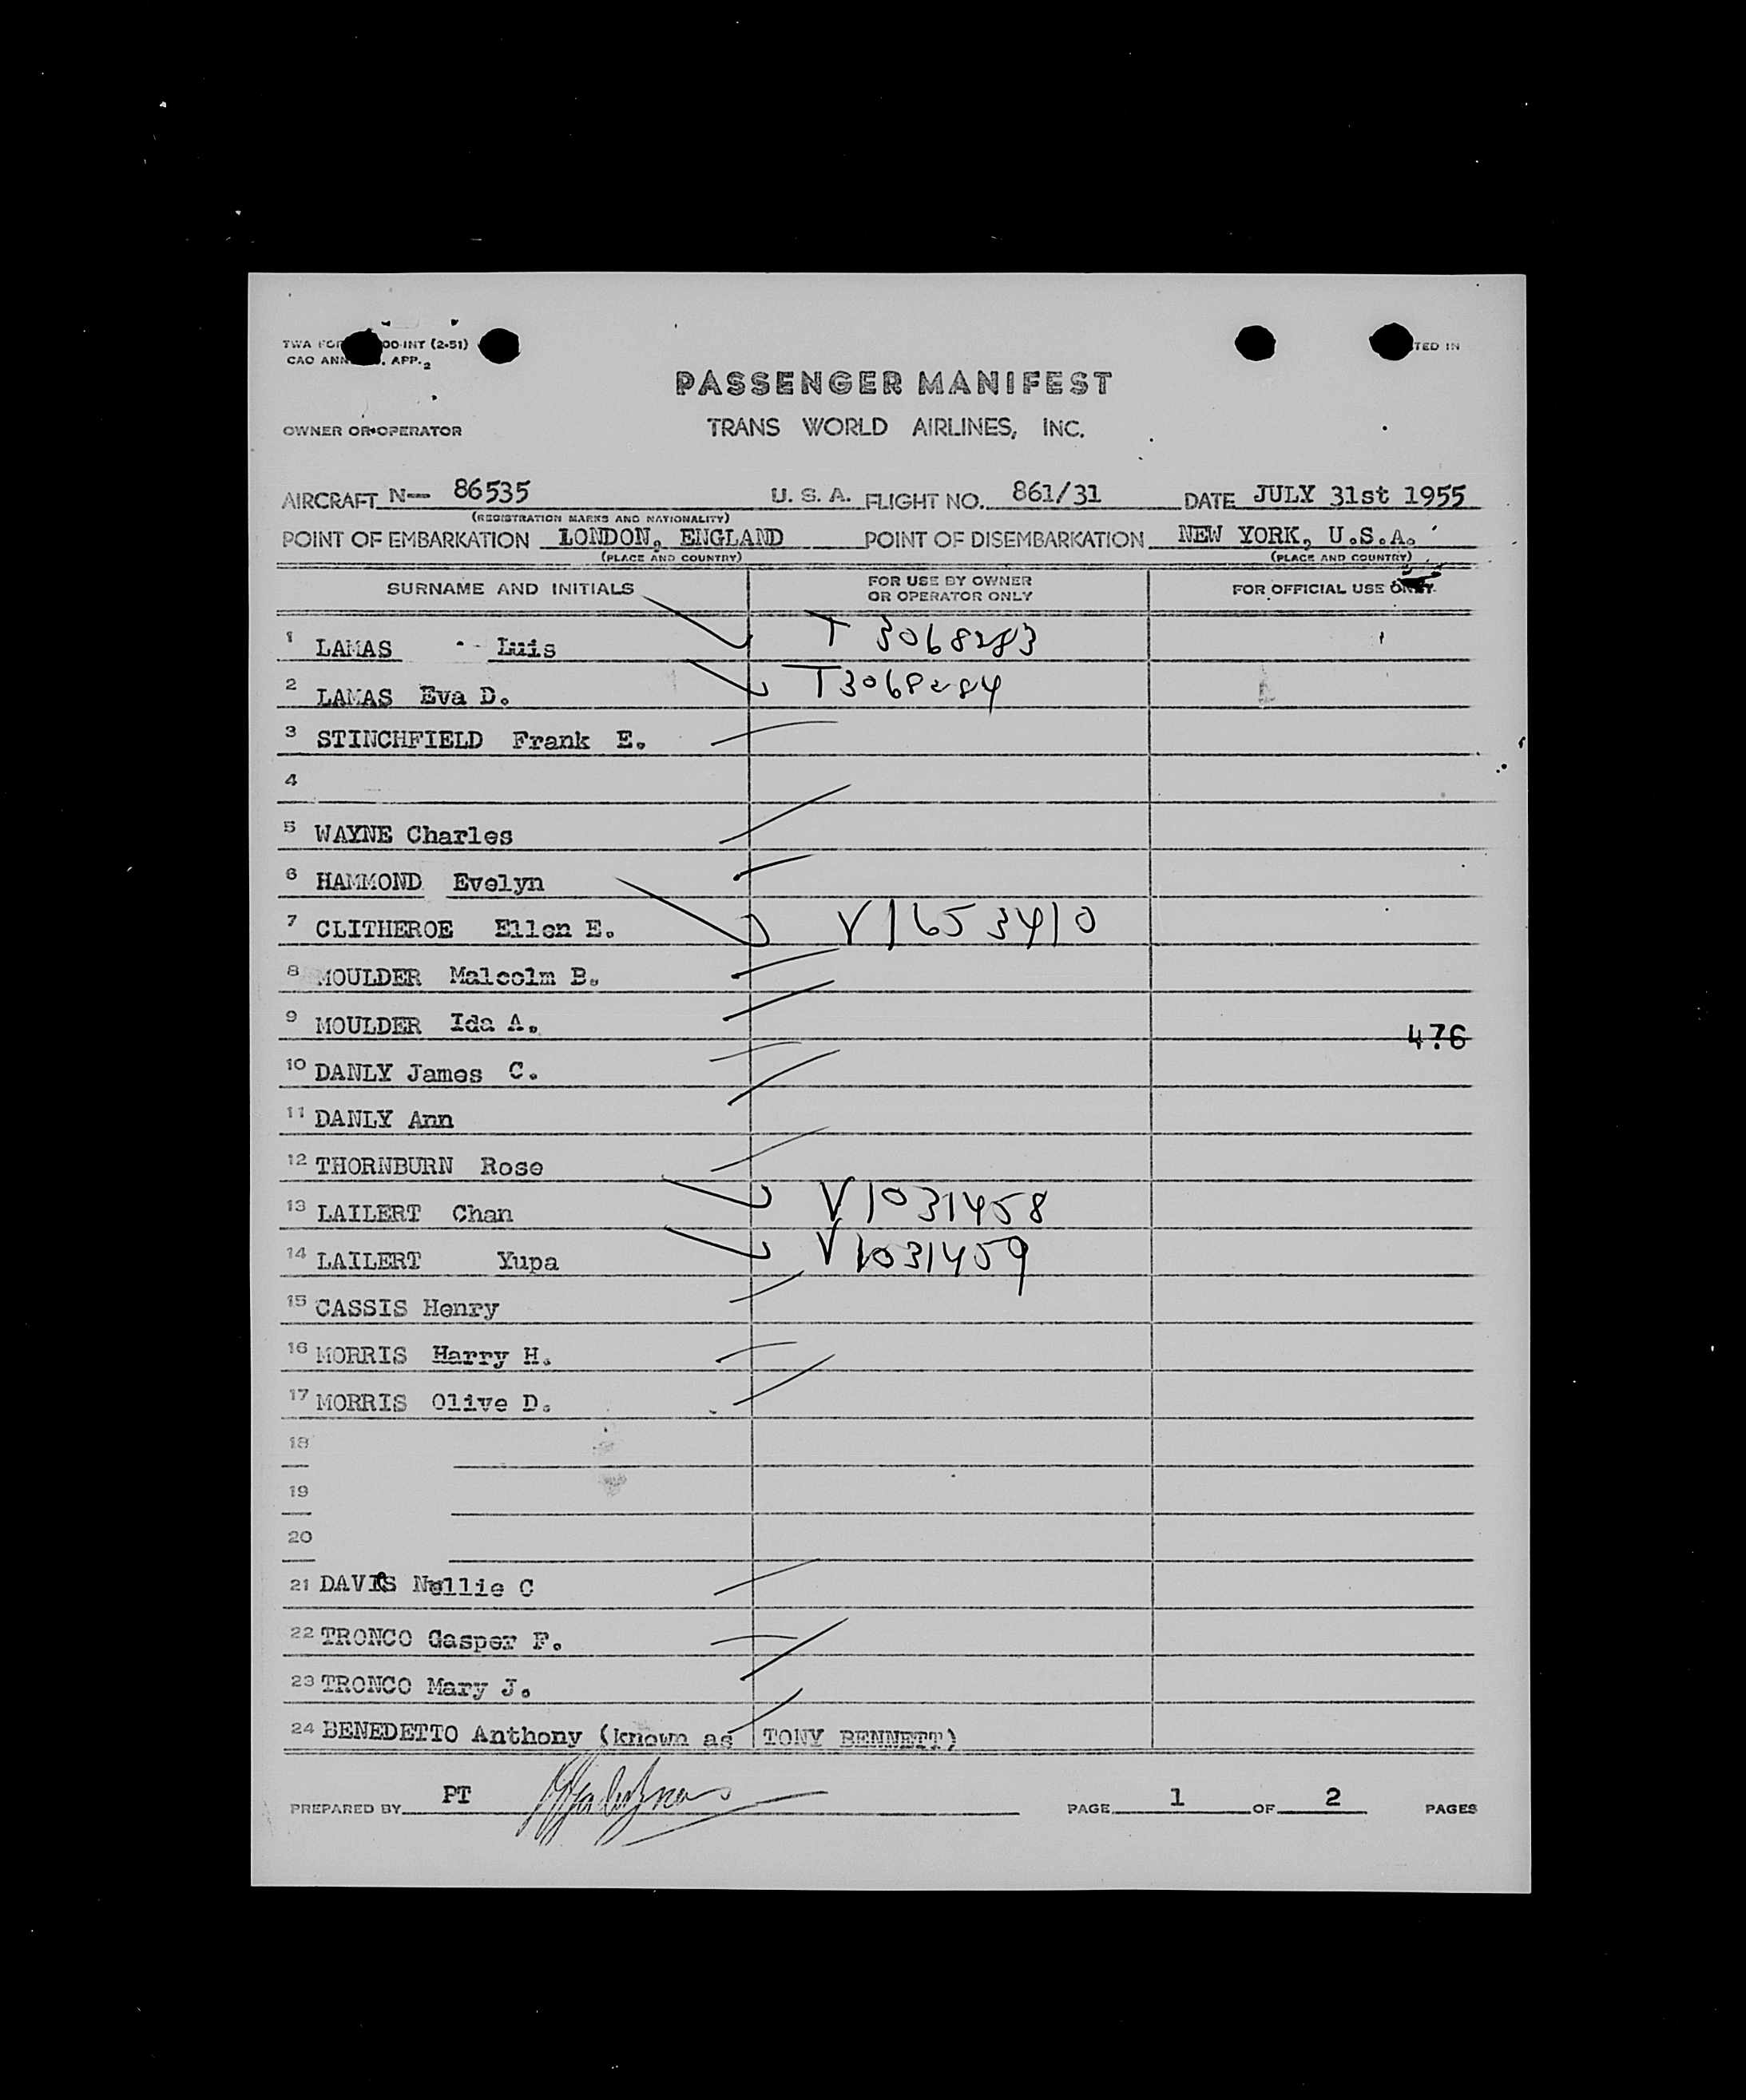 TWA FOR 00-INT (2-51)
CAO ANN . APP. 2
TED IN
PASSENGER MANIFEST
OWNER OR OPERATOR
TRANS WORLD AIRLINES, INC.
AIRCRAFT N— 86535 U. S. A. FLIGHT NO. 861/31 DATE JULY 31st 1955
(REGISTRATION MARKS AND NATIONALITY)
POINT OF EMBARKATION LONDON, ENGLAND POINT OF DISEMBARKATION NEW YORK, U.S.A.
(PLACE AND COUNTRY) (PLACE AND COUNTRY)
SURNAME AND INITIALS FOR USE BY OWNER OR OPERATOR ONLY FOR OFFICIAL USE ONLY
1 LAMAS Luis T 3068283
2 LAMAS Eva D. T3068284
3 STINCHFIELD Frank E.
4
5 WAYNE Charles
6 HAMMOND Evelyn
7 CLITHEROE Ellen E. V1653410
8 MOULDER Malcolm B.
9 MOULDER Ida A.
476
10 DANLY James C.
11 DANLY Ann
12 THORNBURN Rose
13 LAILERT Chan V1031458
14 LAILERT Yupa V1031459
15 CASSIS Henry
16 MORRIS Harry H.
17 MORRIS Olive D.
18
19
20
21 DAVIS Nellie C
22 TRONCO Gasper F.
23 TRONCO Mary J.
24 BENEDETTO Anthony (known as TONY BENNETT)
PREPARED BY PT PAGE 1 OF 2 PAGES